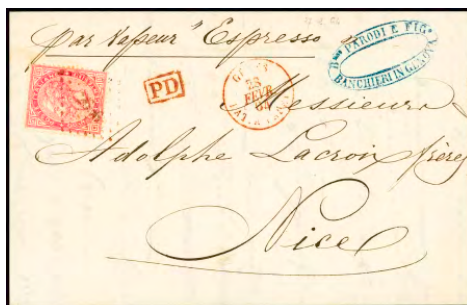 par vapeur "Espresso"
PARODI E FIG°
BANCHIERI IN GENOVA
PD
23
FEVR
Messieurs
Adolphe Lacroix frères
Nice